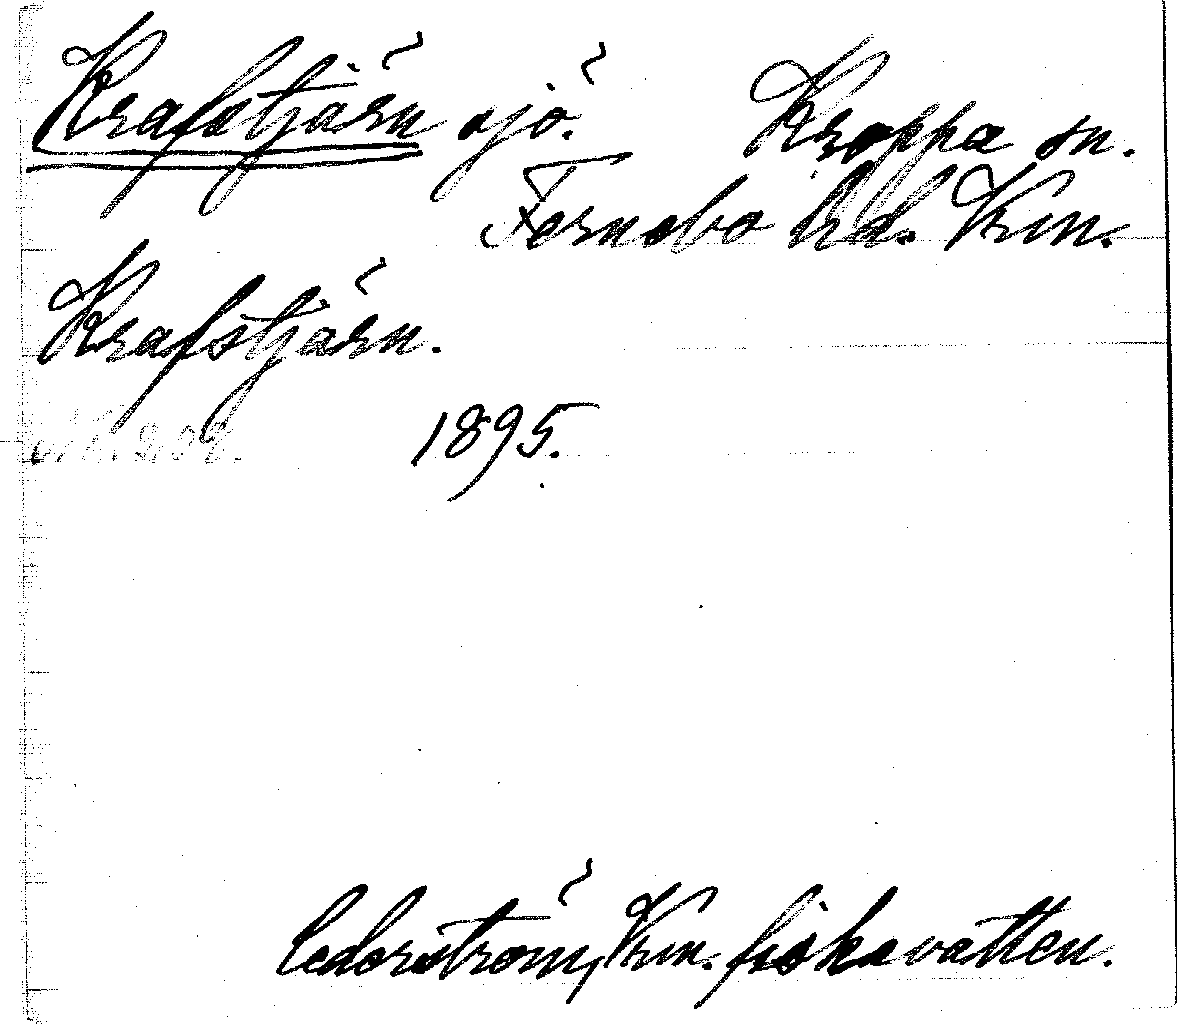 Krafstjärn sjö. Kroppa sn.
Fernebo hd. Vrm.
Krafstjärn.
1895.
Cederström, Vrm. fiskevatten.